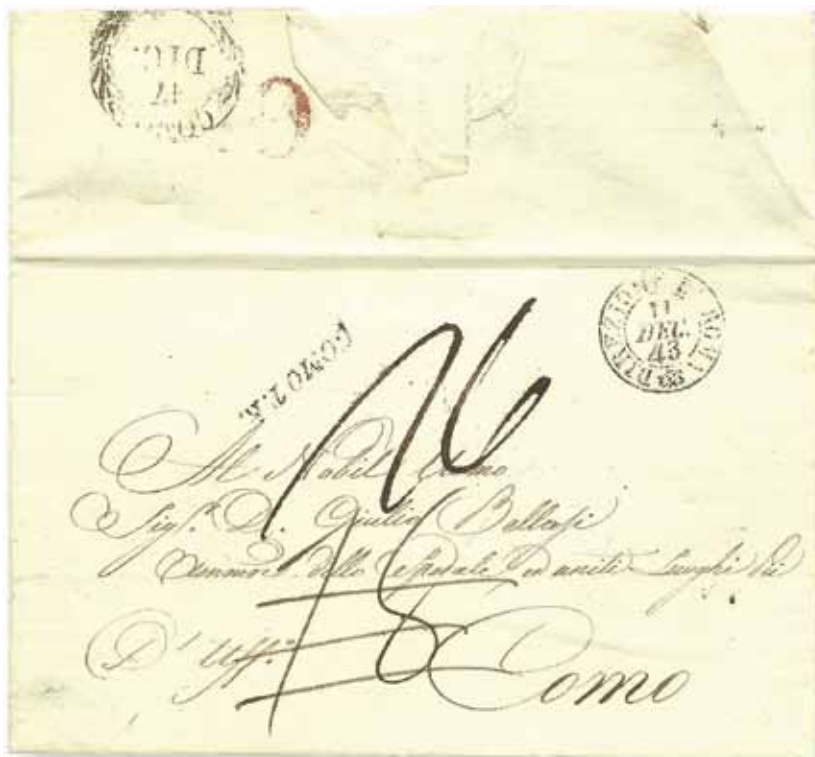 COMO
17
DIC.
DIREZIONE DI ROMA
11
DEC.
43
COMO T.A.
26
Al Nobil Uomo
Sig.r D. Giulio
dello Spedale ed uniti Luoghi Pii
D' Uff.o
Como